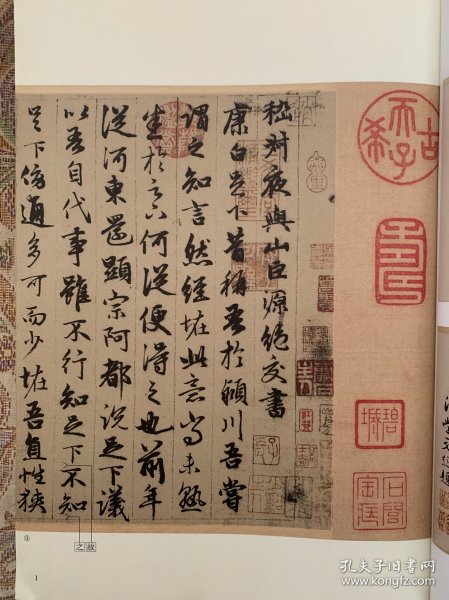 嵇叔夜與山巨源絕交書
康白足下昔稱吾於潁川吾嘗
謂之知言然經怪此意尚未熟
悉於足下何從便得之也前年
從河東還顯宗阿都說足下議
以吾自代事雖不行知足下不知
足下傍通多可而少怪吾直性狹
故
之
古希天子
壽
1
孔夫子旧书网
www.kongfz.com